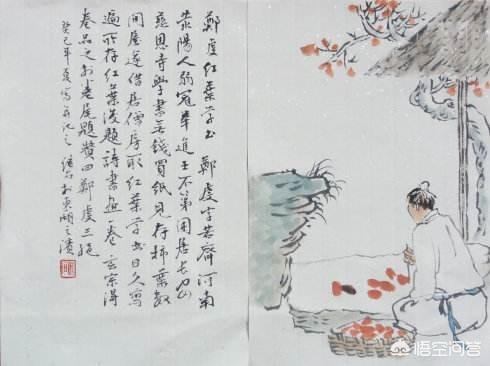 鄭虔红葉学书 鄭虔字若齊河南
荥陽人弱冠舉進士不第困居长安
慈恩寺学書無錢買紙見存柿葉数
間屋遂借居僧房取红葉学书日久寫
遍所存红葉後題詩書画卷玄宗得
奏品之於卷尾題贊曰鄭虔三绝
癸巳年夏寫并记之 於東湖之濱
悟空问答